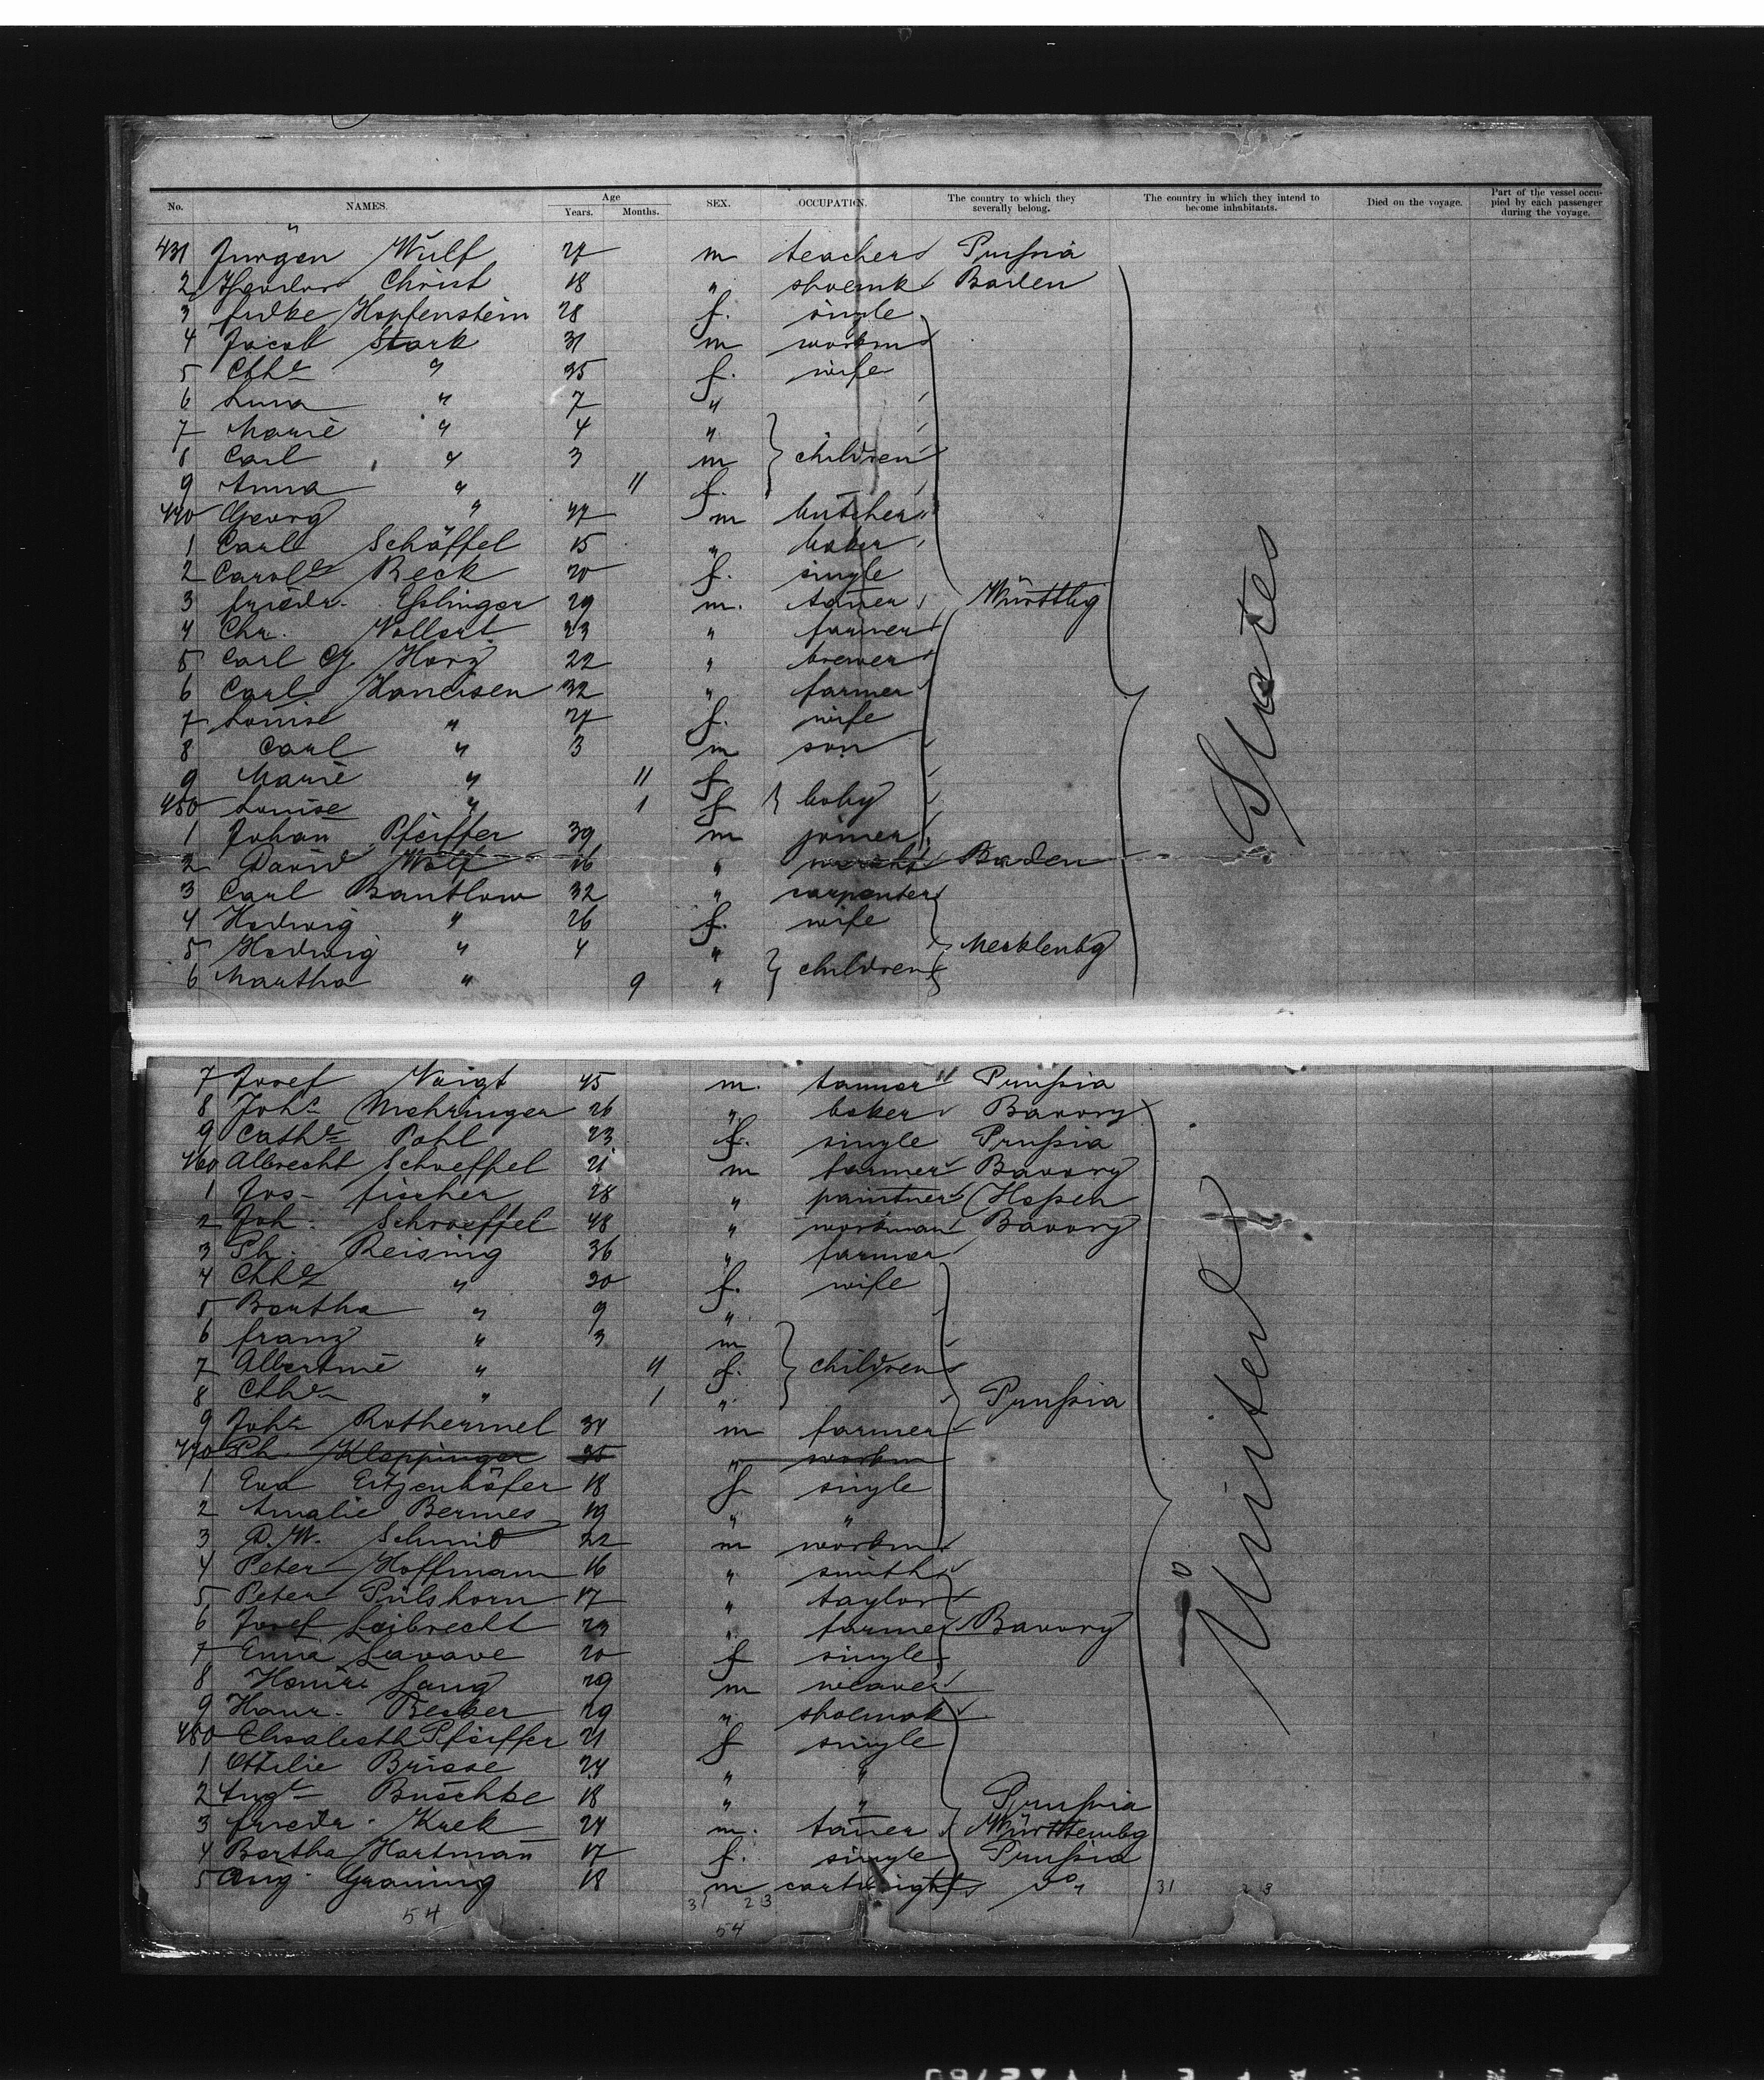 No. NAMES. Age Years. Months. SEX. OCCUPATION. The country to which they severally belong. The country in which they intend to become inhabitants. Died on the voyage. Part of the vessel occupied by each passenger during the voyage.
431 Jürgen Wulf 27 m teacher Prussia
2 Theodor Christ 18 " shoemk Baden
3 Hopfenstein 28 f. single
4 Jacob Stark 31 m workm
5 Cthe " 35 f. wife
6 " 7 "
7 Marie " 4 "
8 Carl " 3 m children
9 Anna " 11 f.
440 Georg " 47 m butcher
1 Carl Schäffel 15 " baker
2 Carole Beck 20 f. single
3 Friedr. Esslinger 29 m. taner Württbg
4 Chr. Vollert 23 " farmer
5 Carl G Horz 22 " brewer
6 Carl Haneisen 32 " farmer
7 Louise " 27 f. wife
8 Carl " 3 m son
9 Marie " 11 f
450 Louise " 1 f baby
1 Johan Pfeiffer 39 m joiner
2 David Wolf 16 " Baden
3 Carl Bantlow 32 " carpenter
4 Hedwig " 26 f. wife
5 Hedwig " 4 " Mecklenbg
6 Martha " 9 " children
7 Josef Voigt 45 m. tanner Prussia
8 Johs Mehringer 26 " baker Bavory
9 Cathe Pohl 23 f. single Prussia
460 Albrecht Schoeffel 21 m farmer Bavory
1 Jos- Fischer 28 " paintner Hessen
2 Joh. Schroeffel 48 " workman Bavory
3 Ph. Reising 36 " farmer
4 Cthe " 30 f. wife
5 Bertha " 9 "
6 Franz " 3 m
7 Albertine " 11 f. children
8 Cthe " 1 " Prussia
9 Johs Rothermel 34 m farmer
470 Ph. Kleppinger 35 " workm
1 Eva Eitzenhöfer 18 f single
2 Amalie Bermes 19 " "
3 D. W. Schmid 22 m workm
4 Peter Hoffmann 16 " smith
5 Peter Pülshorn 17 " taylor
6 Josef Leibrecht 29 " farmer Bavory
7 Emma Lavave 20 f single
8 Lang 29 m weaver
9 Becker 29 " shoemak
480 Elisabeth Pfeiffer 21 f single
1 Ottilie Brisse 24 " "
2 Augte Büschke 18 " " Prussia
3 Friedr. Krek 24 m. taner Württembg
4 Bertha Hartman 17 f. single Prussia
5 Aug. Graning 18 m cartwright do
United States
54
31 23
54
31 23